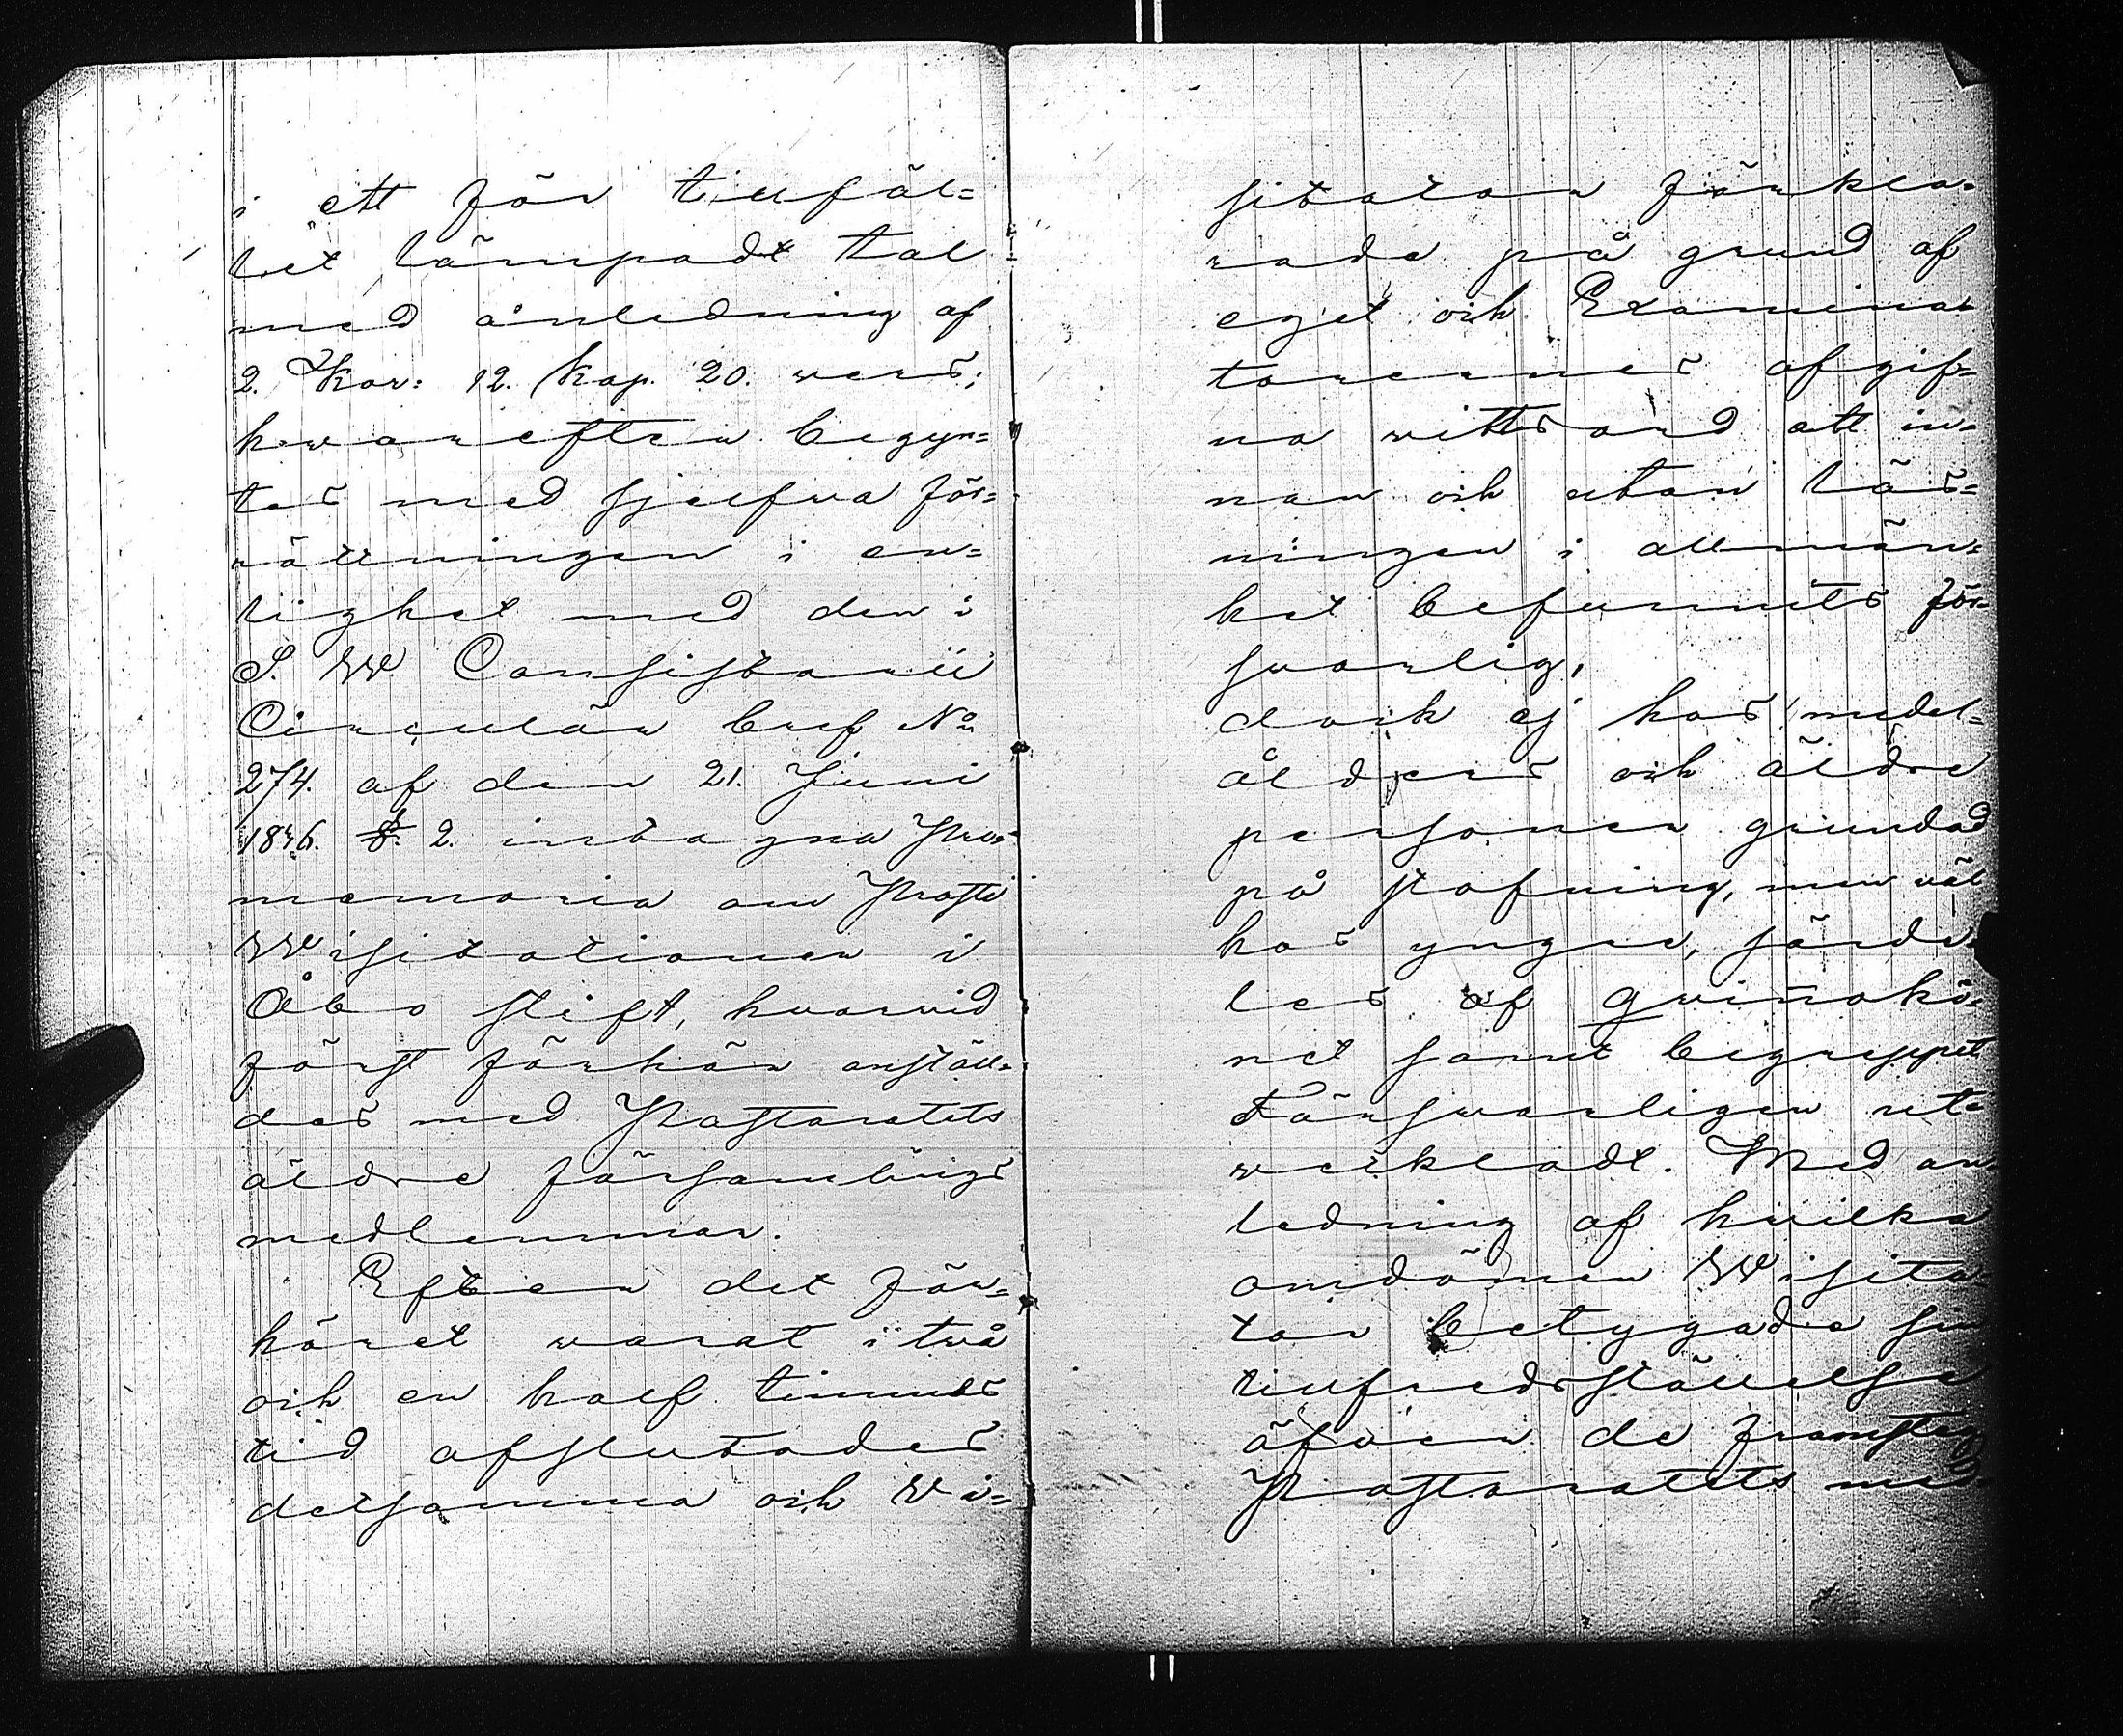 i ett för tillfäl=
let lämpadt tal
med anledning af
2. Kor: 12. Kap. 20. vers;
hvarefter begyn=
tes med sjelfva för=
rättningen i en=
lighet med den i
S. W. Consistorii
Circulär bref No
274. af den 21. Juni
1836. §. 2. intagna Pro=
memoria om Prosti
Wisitationer i
Åbo stift, hvarvid
först förhör anställ=
des med Pastoratets
äldre församlings
medlemmar.
Efter det för=
höret varat i två
och en half timmes
tid afslutades
detsamma och Wi=
sitator förkla=
rade på grund af
eget och Examina=
torernes afgif=
na vittsord att in=
nan och utan läs=
ningen i allmän=
het befunnits för=
svarlig,
dock ej hos medel=
ålders och äldre
personer grundad
på stafning, men väl
hos yngre, särde=
les af qvinokö=
net samt begreppet
Försvarligen ut=
veckladt. Med an=
ledning af hvilka
omdömen Wisita=
tor betygade sin
tillfredsställelse
äfven de framsteg
Pastoratets med=